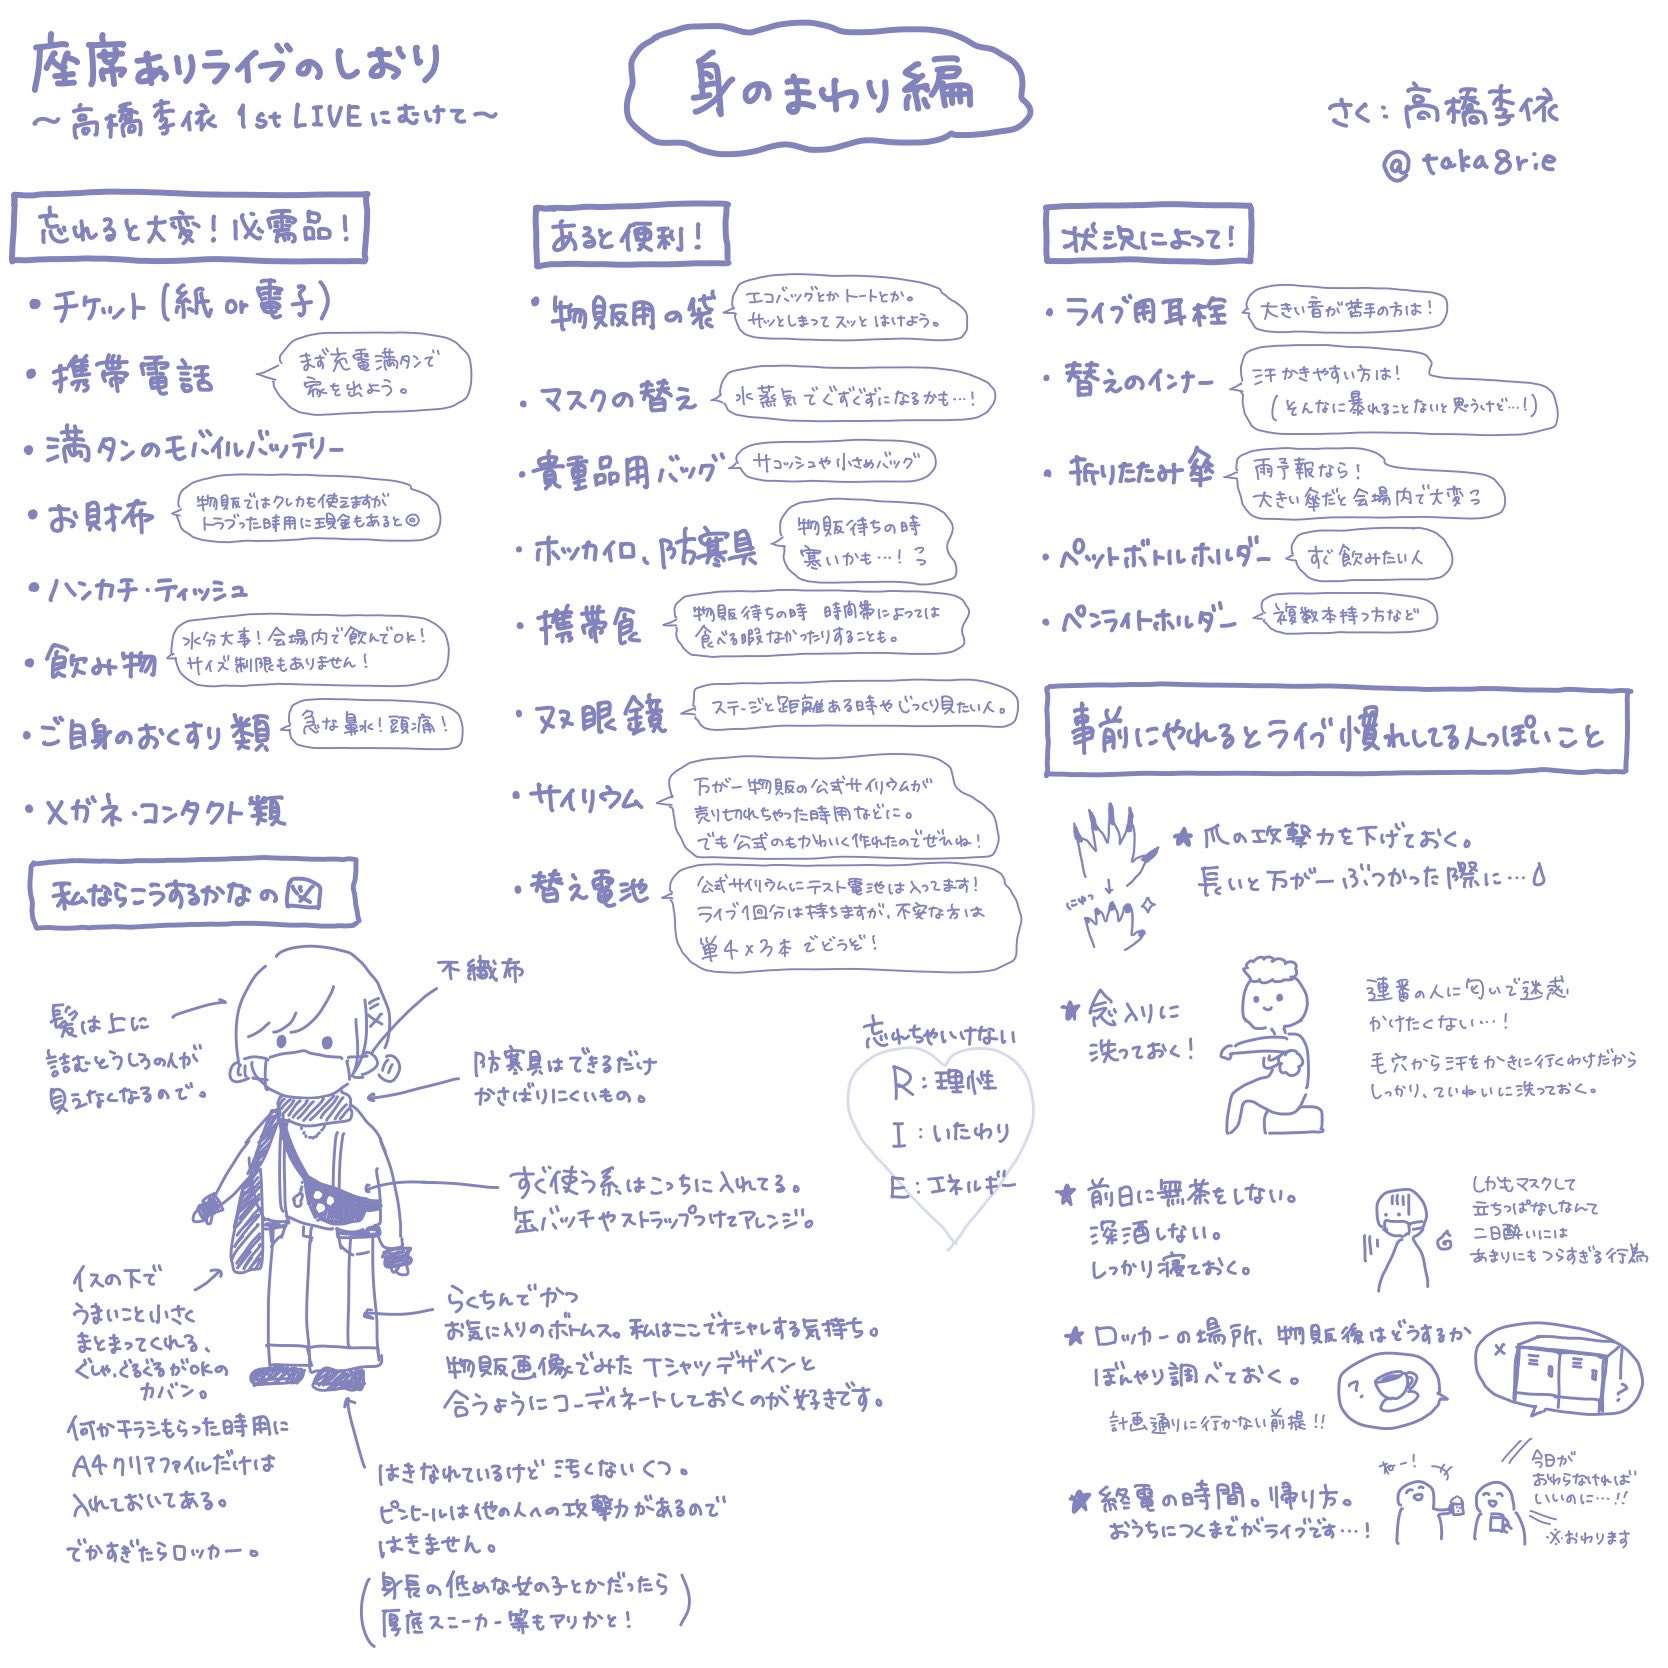 座席ありライブのしおり
〜高橋李依 1st LIVEにむけて〜
身のまわり編
さく:高橋李依
@taka8rie
忘れると大変!必需品!
・チケット(紙or電子)
・携帯電話
まず充電満タンで
家を出よう。
・満タンのモバイルバッテリー
・お財布
物販ではクレカも使えますが
トラブった時用に現金もあると◎
・ハンカチ・ティッシュ
・飲み物
水分大事!会場内で飲んでOK!
サイズ制限もありません!
・ご自身のおくすり類
急な鼻水!頭痛!
・メガネ・コンタクト類
あると便利!
・物販用の袋
エコバッグとかトートとか。
サッとしまってスッとはけよう。
・マスクの替え
水蒸気でぐずぐずになるかも…!
・貴重品用バッグ
サコッシュや小さめバッグ
・ホッカイロ、防寒具
物販待ちの時
寒いかも…!っ
・携帯食
物販待ちの時 時間帯によっては
食べる暇なかったりすることも。
・双眼鏡
ステージと距離ある時やじっくり見たい人。
・サイリウム
万が一物販の公式サイリウムが
売り切れちゃった時用などに。
でも公式のもかわいく作れたのでぜひね!
・替え電池
公式サイリウムにテスト電池は入ってます!
ライブ1回分は持ちますが、不安な方は
単4×3本でどうぞ!
状況によって!
・ライブ用耳栓
大きい音が苦手の方は!
・替えのインナー
汗かきやすい方は!
(そんなに暴れることないと思うけど…!)
・折りたたみ傘
雨予報なら!
大きい傘だと会場内で大変っ
・ペットボトルホルダー
すぐ飲みたい人
・ペンライトホルダー
複数本持つ方など
事前にやれるとライブ慣れしてる人っぽいこと
★爪の攻撃力を下げておく。
長いと万が一ぶつかった際に…
にゅっ
★念入りに
洗っておく!
連番の人に匂いで迷惑
かけたくない…!
毛穴から汗をかきに行くわけだから
しっかり、ていねいに洗っておく。
★前日に無茶をしない。
深酒しない。
しっかり寝ておく。
しかもマスクして
立ちっぱなしなんて
二日酔いには
あまりにもつらすぎる行為
★ロッカーの場所、物販後はどうするか
ぼんやり調べておく。
計画通りに行かない前提!!
?
×
?
★終電の時間。帰り方。
おうちにつくまでがライブです…!
ねー!
今日が
おわらなければ
いいのに…!!
※おわります
私ならこうするかなの図
髪は上に
詰むとうしろの人が
見えなくなるので。
不織布
防寒具はできるだけ
かさばりにくいもの。
すぐ使う系はこっちに入れてる。
缶バッチやストラップつけてアレンジ。
イスの下で
うまいこと小さく
まとまってくれる、
ぐしゃ、ぐるぐるがOKの
カバン。
何かチラシもらった時用に
A4クリアファイルだけは
入れておいてある。
でかすぎたらロッカー。
らくちんでかつ
お気に入りのボトムス。私はここでオシャレする気持ち。
物販画像でみたTシャツデザインと
合うようにコーディネートしておくのが好きです。
はきなれているけど汚くないくつ。
ピンヒールは他の人への攻撃力があるので
はきません。
(身長の低めな女の子とかだったら
厚底スニーカー等もアリかと!)
忘れちゃいけない
R:理性
I:いたわり
E:エネルギー